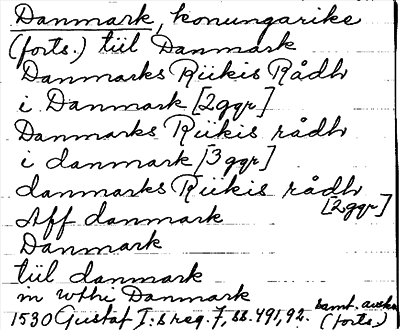 Danmark, konungarike
(forts.) tiil Danmark
Danmarks Riikis Rådh
i Danmark [2ggr]
Danmarks Riikis rådh
i danmark [3ggr]
danmarks Riikis rådh
[2ggr]
Aff danmark
Danmark
tiil danmark
in wthi Danmark
1530 Gustaf I:s reg. 7, ss. 491, 92. samt.
(forts.)